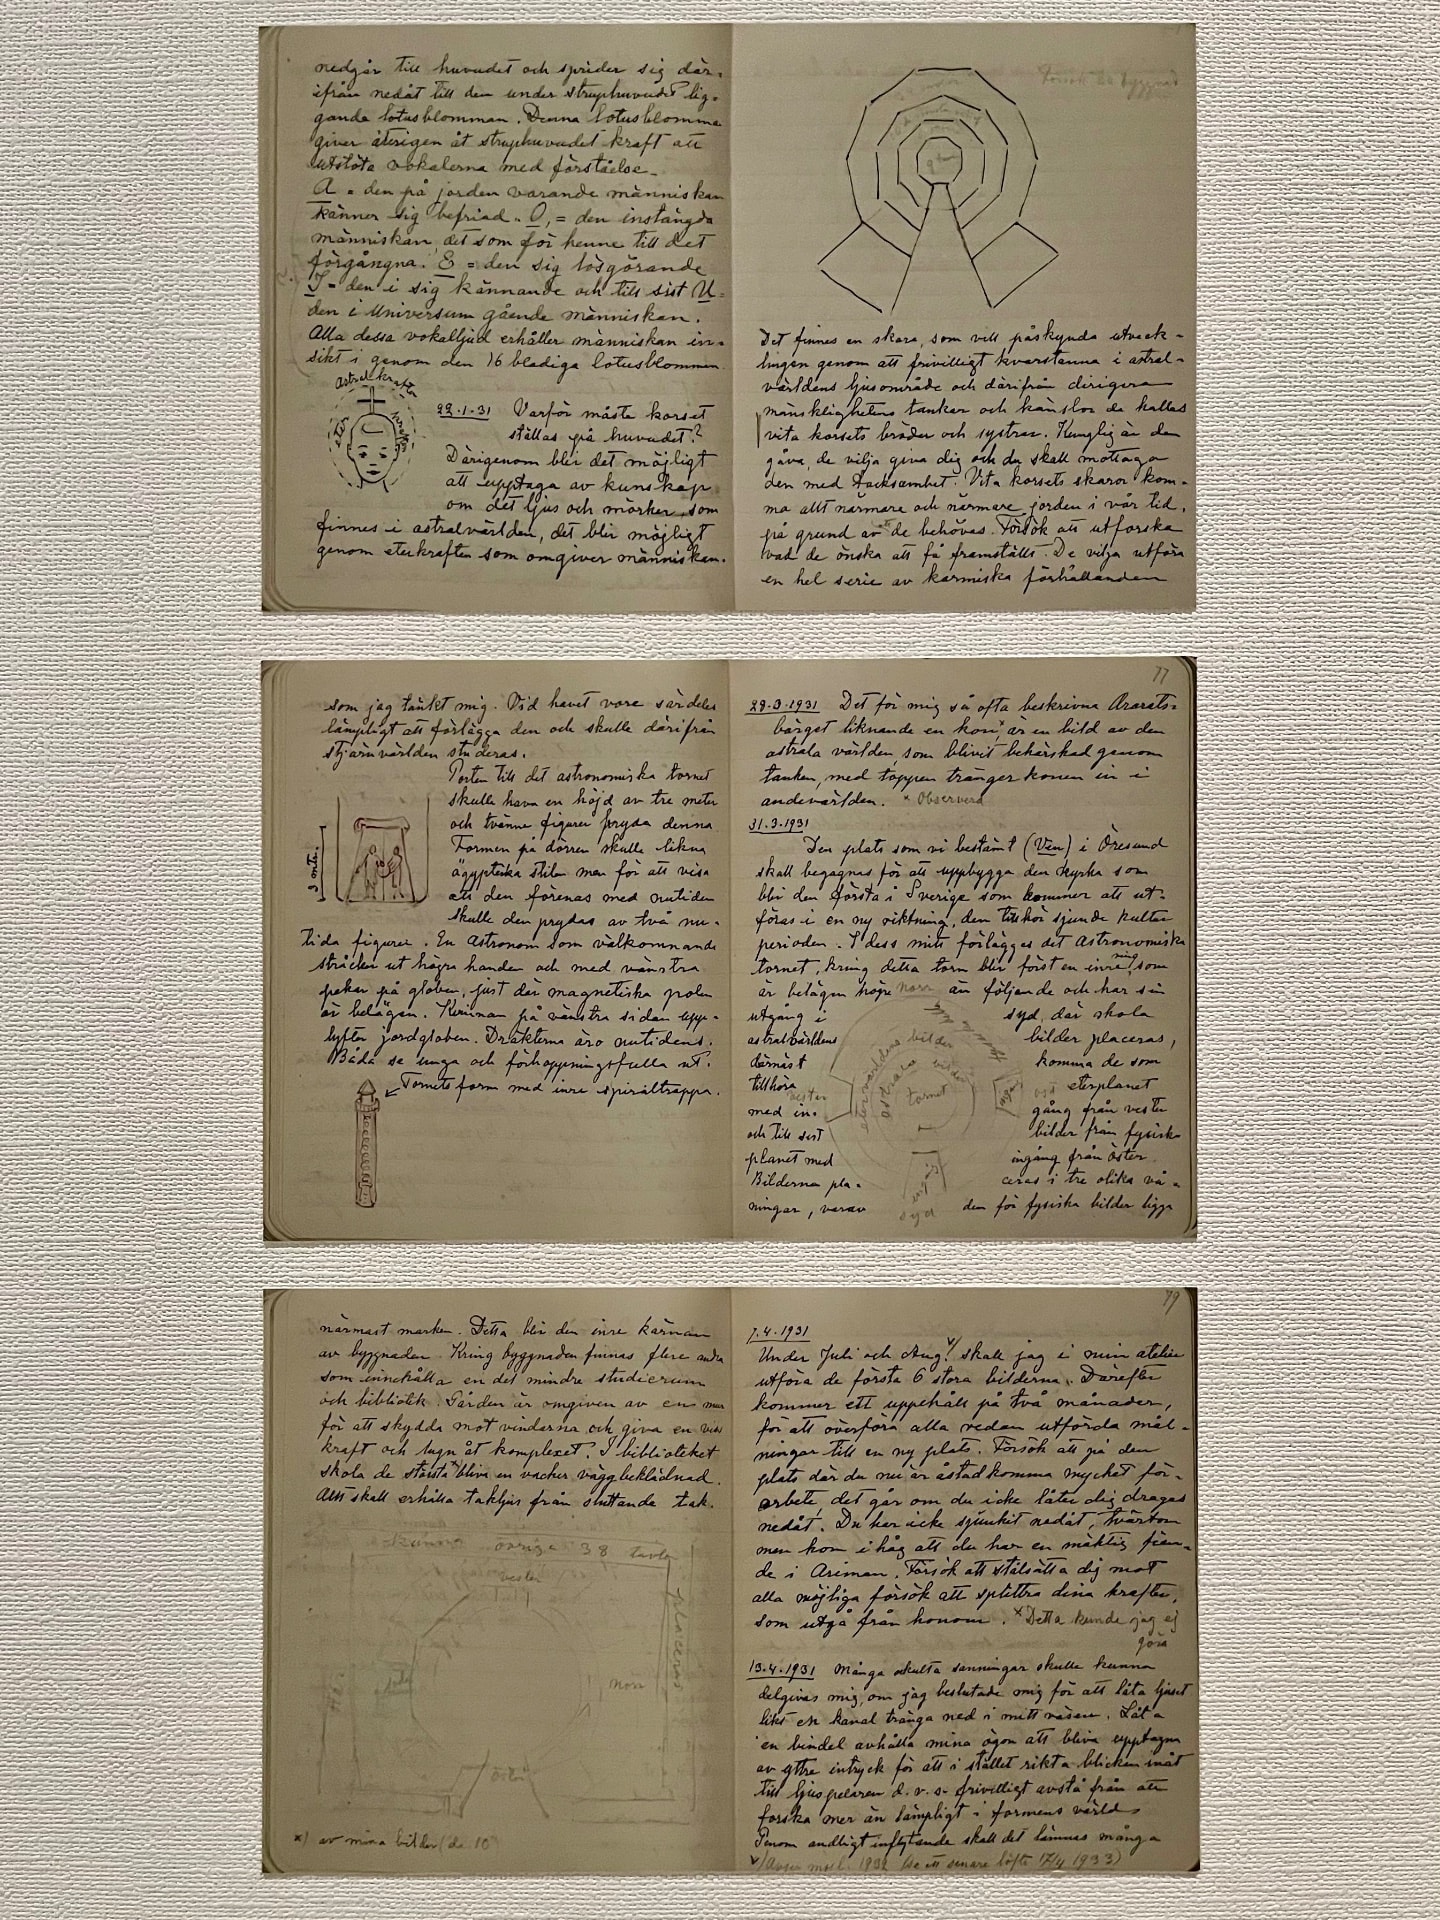 nedgår till huvudet och sprider sig där-
ifrån nedåt till den under struphuvudet lig-
ganda lotusblomman. Denna lotusblomma
giver återigen åt struphuvudet kraft att
utstöta vokalerna med förståelse.
A = den på jorden varande människan
känner sig befriad. O, = den instängda
människan, det som för henne till det
förgångna. E = den sig lösgörande
I = den i sig kännande och till sist U =
den i Universum gående människan.
Alla dessa vokalljud erhåller människan in-
sikt i genom den 16 bladiga lotusblomman.
Astralkrafter
eter
22.1.31 Varför måste korset
ställas på huvudet?
Därigenom blir det möjligt
att upptaga av kunskap
om det ljus och mörker, som
finnes i astralvärlden, det blir möjligt
genom eterkraften som omgiver människan.
Försök till byggnad
Det finnes en skara, som vill påskynda utveck-
lingen genom att frivilligt kvarstanna i astral-
världens ljusområde och därifrån dirigera
mänsklighetens tankar och känslor de kallas
vita korsets bröder och systrar. Kunglig är den
gåva, de vilja giva dig och du skall mottaga
den med tacksamhet. Vita korsets skaror kom-
ma allt närmare och närmare jorden i vår tid,
på grund av att de behövas. Försök att utforska
vad de önska att få framställt. De vilja utföra
en hel serie av karmiska förhållanden
som jag tänkt mig. Vid havet vore särdeles
lämpligt att förlägga den och skulle därifrån
stjärnvärlden studeras.
Porten till det astronomiska tornet
skulle hava en höjd av tre meter
och tvänne figurer pryda denna
Formen på dörren skulle likna
ägyptiska stilen men för att visa
att den förenas med nutiden
skulle den prydas av två nu-
tida figurer. En astronom som välkomnande
sträcker ut högra handen och med vänstra
pekar på globen, just där magnetiska polen
är belägen. Kvinnan på vänstra sidan upp-
lyfter jordgloben. Dräkterna äro nutidens.
Båda se unga och förhoppningsfulla ut.
Tornets form med inre spiraltrappa.
3 mtr.
77
29.3.1931 Det för mig så ofta beskrivna Ararats-
bärget liknande en kon x, är en bild av den
astrala världen som blivit behärskad genom
tanken, med toppen tränger konen in i
andevärlden. x Observera
31.3.1931
Den plats som vi bestämt (Ven) i Öresund
skall begagnas för att uppbygga den kyrka som
blir den första i Sverige som kommer att ut-
föras i en ny riktning, den tillhör sjunde kultur
perioden. I dess mitt förlägges det astronomiska
tornet, kring detta torn blir först en inre ring, som
är belägen högre än följande och har sin
norr
utgång i syd, där skola
astralvärldens bilder placeras,
därnäst komma de som
tillhöra eterplanet
med in- gång från vester
och till sist bilder från fysiska
planet med ingång från öster.
Bilderna pla- ceras i tre olika vå-
ningar, varav den för fysiska bilder ligga
vester
ost
etervärldens bilder
astrala bilder
tornet
ingång
ingång
syd
närmast marken. Detta blir den inre kärnan
av byggnaden. Kring byggnaden finnas flere andra
som innehålla en del mindre studierum
och bibliotek. Gården är omgiven av en mur
för att skydda mot vindarna och giva en viss
kraft och lugn åt komplexet. I biblioteket
skola de största x) bliva en vacker väggbeklädnad.
Allt skall erhålla takljus från sluttande tak.
kunna övriga 38 tavlor
placeras
vester
norr
öster
x) av mina bilder (de 10)
79
7.4.1931
Under Juli och Aug. v/ skall jag i min atelier
utföra de första 6 stora bilderna. Därefter
kommer ett uppehåll på två månader,
för att överföra alla redan utförda mål-
ningar till en ny plats. Försök att på den
plats där du nu är åstadkomma mycket för-
arbete, det går om du icke låter dig dragas
nedåt. Du har icke sjunkit nedåt, tvärtom
men kom i håg att du har en mäktig fien-
de i Ariman. Försök att stålsätta dig mot
alla möjliga försök att splittra dina krafter,
som utgå från honom. x Detta kunde jag ej
göra
13.4.1931 Många okulta sanningar skulle kunna
delgivas mig, om jag beslutade mig för att låta ljuset
likt en kanal tränga ned i mitt väsen. Låta
en bindel avhålla mina ögon att bliva upptagna
av yttre intryck för att i stället rikta blicken inåt
till ljuspelaren d.v.s. frivilligt avstå från att
forska mer än lämpligt i formens värld.
Genom andligt inflytande skall det lämnas många
1932 (se ett senare häfte 17/4 1933)